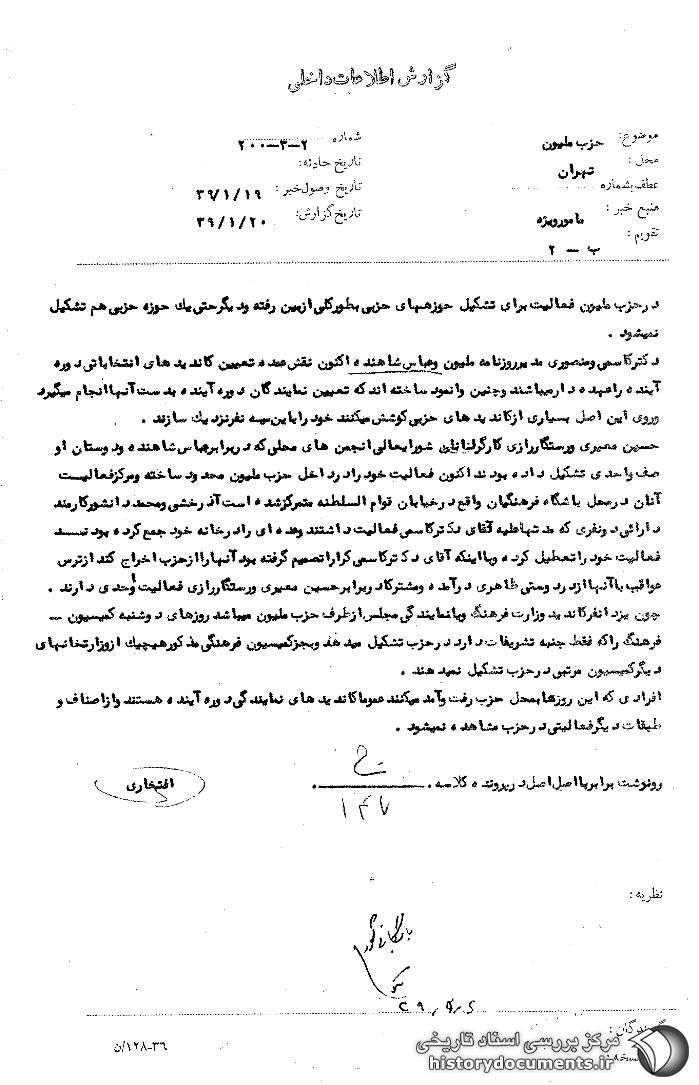 گزارش اطلاعات داخلی
موضوع: حزب ملیون
شماره ۲-۳-۲۰۰
محل: تهران
تاریخ حادثه:
عطف بشماره
تاریخ وصول خبر: ۳۹/۱/۱۹
منبع خبر: مامور ویژه
تاریخ گزارش: ۳۹/۱/۲۰
تقویم: ب - ۲
در حزب ملیون فعالیت برای تشکیل حوزه‌های حزبی بطور کلی از بین رفته و دیگر حتی یك حوزه حزبی هم تشکیل
نمیشود .
دکتر کاسمی و منصوری مدیر روزنامه ملیون و عباس شاهنده اکنون نقش عمده تعیین کاندید های انتخاباتی دوره
آینده را عهده دار میباشند و چنین وانمود ساخته اند که تعیین نمایندگان دوره آینده بدست آنها انجام میگیرد
و روی این اصل بسیاری از کاندید های حزبی کوشش میکنند خود را باین سه نفر نزدیك سازند .
حسین معیری و رستگار رازی کارگردانان شورایعالی انجمن های محلی که در برابر عباس شاهنده و دوستان او
صف واحدی تشکیل داده بودند اکنون فعالیت خود را در داخل حزب ملیون محدود ساخته و مرکز فعالیت
آنان در محل باشگاه فرهنگیان واقع در خیابان قوام السلطنه متمرکز شده است آذرخشی و محمد دانشور کارمند
دارائی دو نفری که مدتها علیه آقای دکتر کاسمی فعالیت داشتند و عده ای را در خانه خود جمع کرده بودند
فعالیت خود را تعطیل کرده و با اینکه آقای دکتر کاسمی کرارا تصمیم گرفته بود آنها را از حزب اخراج کند از ترس
عواقب با آنها از در دوستی ظاهری درآمده و مشترکا در برابر حسین معیری و رستگار رازی فعالیت واحدی دارند .
چون یزدانفر کاندید وزارت فرهنگ و یا نمایندگی مجلس از طرف حزب ملیون میباشد روزهای دوشنبه کمیسیون -
فرهنگ را که فقط جنبه تشریفات دارد در حزب تشکیل میدهد و بجز کمیسیون فرهنگی مذکور هیچیك از وزارتخانه‌های
دیگر کمیسیون مرتبی در حزب تشکیل نمیدهند .
افرادی که این روزها بمحل حزب رفت و آمد میکنند عموما کاندید های نمایندگی دوره آینده هستند و از اصناف و
طبقات دیگر فعالیتی در حزب مشاهده نمیشود .
رونوشت برابر با اصل اصل در پرونده کلاسه
۱۴۷
افتخاری
نظریه:
بایگانی شود
گیرندگان:
۱۲۸-۳۶/ن
مرکز بررسی اسناد تاریخی
historydocuments.ir